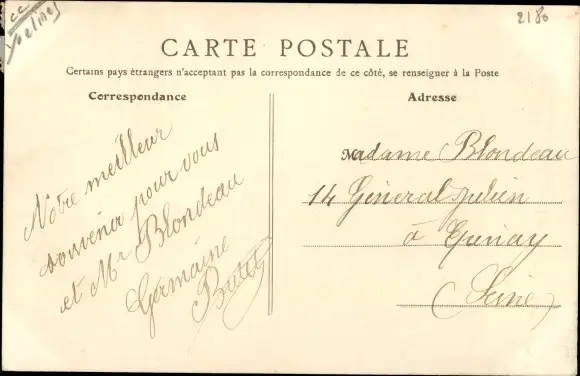 2180
CARTE POSTALE
Certains pays étrangers n'acceptant pas la correspondance de ce côté, se renseigner à la Poste
Correspondance
Adresse
Notre meilleur
souvenir pour vous
et Mr Blondeau
Germaine
Madame Blondeau
14 Général
à
(Seine)